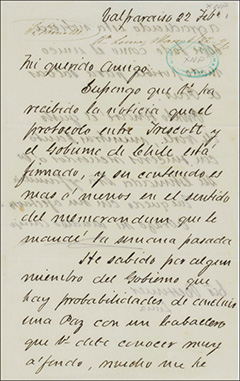 Valparaiso 22 Feb.
Mi querido Amigo.
Supongo que Vd. ha
recibido la noticia que el
protocolo entre Trescott, y
el Gobierno de Chile esta
firmado, y su contenido es
mas ó menos en el sentido
del memorandum que le
mandé la semana pasada
He sabido por algun
miembro del Gobierno que
hay probabilidades de concluir
una Paz con un Caballero
que Vd. debe conocer muy
á fondo, mucho me he